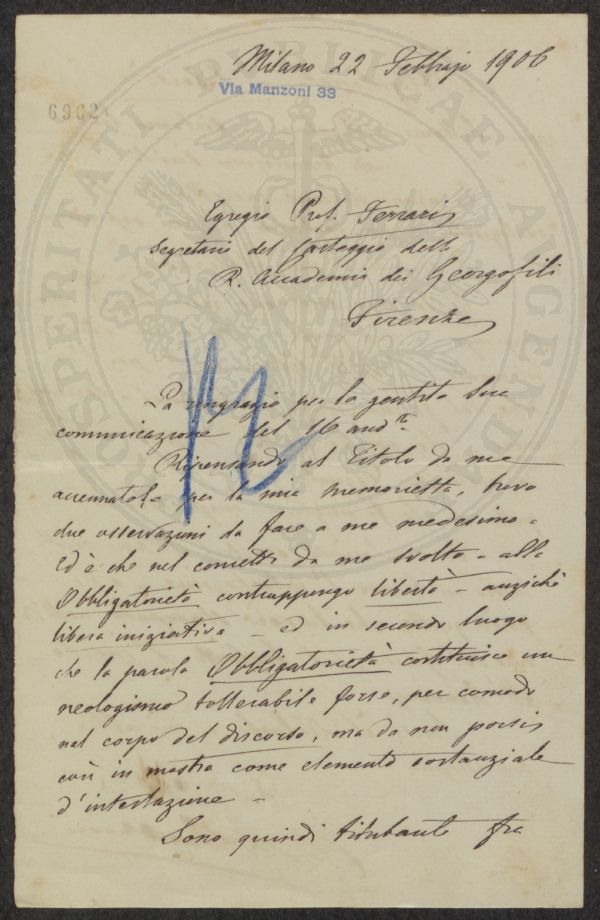 Milano 22 Febbrajo 1906
Via Manzoni 33
6962
PROSPERITATI PUBLICAE AUGENDAE
Egregio Prof. Ferrari
Segretario del Carteggio della
R. Accademia dei Georgofili
Firenze
La ringrazio per la gentile Sua
comunicazione del 16 and.te
Ripensando al Titolo da me
accennatole per la mia memorietta, trovo
due osservazioni da fare a me medesimo.
Ed è che nel concetto da me svolto - alla
Obbligatorietà contrappongo libertà - anzichè
libera iniziativa - ed in secondo luogo
che la parola Obbligatorietà costituisce un
neologismo tollerabile forse, per comodo
nel corpo del discorso, ma da non porsi
così in mostra come elemento sostanziale
d'intestazione -
Sono quindi titubante fra